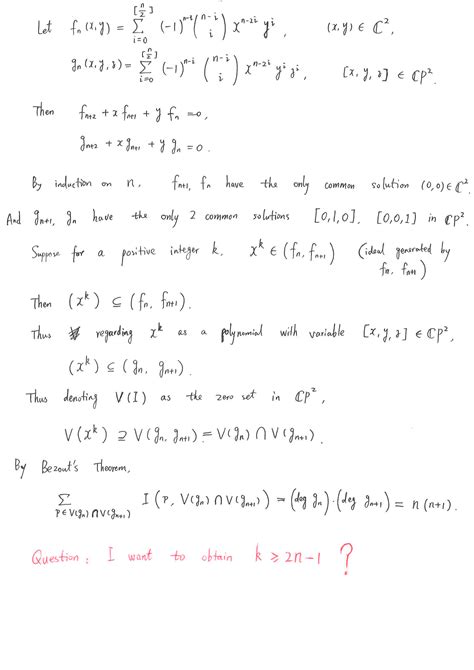 Let f_n(x,y) = \sum_{i=0}^{[\frac{n}{2}]} (-1)^{n-i} \binom{n-i}{i} x^{n-2i} y^i , (x,y) ∈ ℂ²,
g_n(x,y,z) = \sum_{i=0}^{[\frac{n}{2}]} (-1)^{n-i} \binom{n-i}{i} x^{n-2i} y^i z^i , [x,y,z] ∈ ℂP².
Then f_{n+2} + x f_{n+1} + y f_n = 0,
g_{n+2} + x g_{n+1} + y g_n = 0.
By induction on n, f_{n+1}, f_n have the only common solution (0,0) ∈ ℂ².
And g_{n+1}, g_n have the only 2 common solutions [0,1,0], [0,0,1] in ℂP².
Suppose for a positive integer k, x^k ∈ (f_n, f_{n+1}) (ideal generated by
f_n, f_{n+1})
Then (x^k) ⊆ (f_n, f_{n+1}).
Thus regarding x^k as a polynomial with variable [x,y,z] ∈ ℂP²,
(x^k) ⊆ (g_n, g_{n+1}).
Thus denoting V(I) as the zero set in ℂP²,
V(x^k) ⊇ V(g_n, g_{n+1}) = V(g_n) ∩ V(g_{n+1}).
By Bezout's Theorem,
\sum_{p∈V(g_n)∩V(g_{n+1})} I(p, V(g_n) ∩ V(g_{n+1})) = (deg g_n)·(deg g_{n+1}) = n(n+1).
Question: I want to obtain k ≥ 2n-1 ?